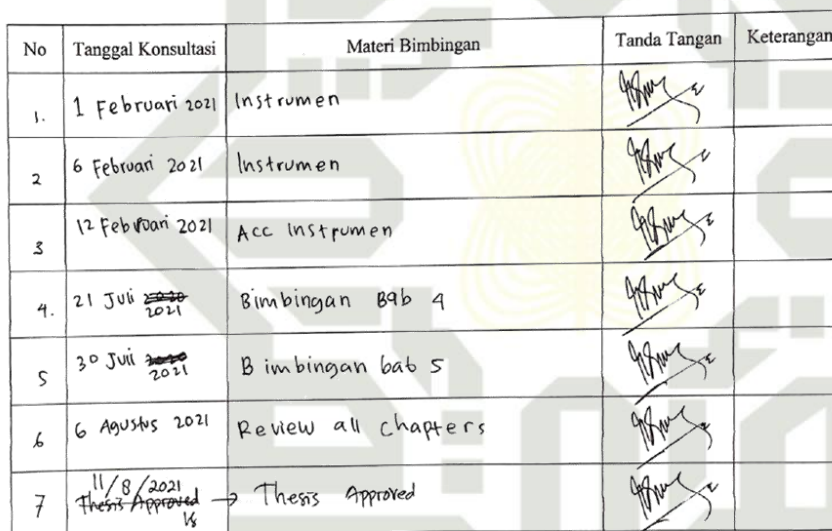 No Tanggal Konsultasi Materi Bimbingan Tanda Tangan Keterangan
1. 1 Februari 2021 Instrumen
2 6 Februari 2021 Instrumen
3 12 Februari 2021 Acc Instrumen
4. 21 Juli 2020 2021 Bimbingan Bab 4
5 30 Juli 2020 2021 Bimbingan bab 5
6 6 Agustus 2021 Review all chapters
7 11/8/2021 Thesis Approved → Thesis Approved